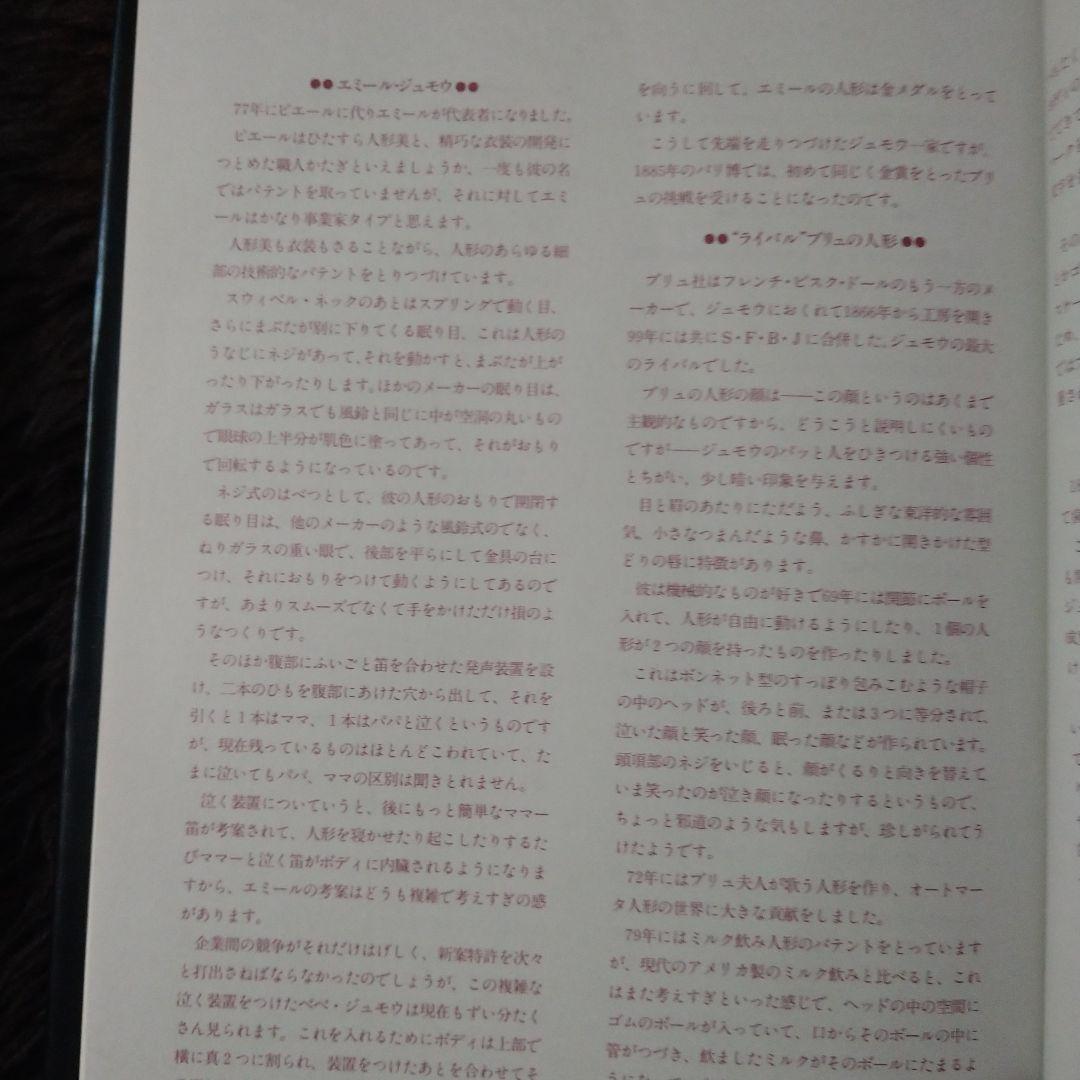 ●●エミール・ジュモウ●●
77年にピエールに代りエミールが代表者になりました。
ピエールはひたすら人形美と、精巧な衣装の開発に
つとめた職人かたぎといえましょうか、一度も彼の名
ではパテントを取っていませんが、それに対してエミ
ールはかなり事業家タイプと思えます。
人形美も衣装もさることながら、人形のあらゆる細
部の技術的なパテントをとりつづけています。
スウィベル・ネックのあとはスプリングで動く目、
さらにまぶたが別に下りてくる眠り目、これは人形の
うなじにネジがあって、それを動かすと、まぶたが上が
ったり下がったりします。ほかのメーカーの眠り目は、
ガラスはガラスでも風鈴と同じに中が空洞の丸いもの
で眼球の上半分が肌色に塗ってあって、それがおもり
で回転するようになっているのです。
ネジ式のはべつとして、彼の人形のおもりで開閉す
る眠り目は、他のメーカーのような風鈴式のでなく、
ねりガラスの重い眼で、後部を平らにして金具の台に
つけ、それにおもりをつけて動くようにしてあるので
すが、あまりスムーズでなくて手をかけただけ損のよ
うなつくりです。
そのほか腹部にふいごと笛を合わせた発声装置を設
け、二本のひもを腹部にあけた穴から出して、それを
引くと1本はママ、1本はパパと泣くというものです
が、現在残っているものはほとんどこわれていて、た
まに泣いてもパパ、ママの区別は聞きとれません。
泣く装置についていうと、後にもっと簡単なママー
笛が考案されて、人形を寝かせたり起こしたりするた
びママーと泣く笛がボディに内臓されるようになりま
すから、エミールの考案はどうも複雑で考えすぎの感
があります。
企業間の競争がそれだけはげしく、新案特許を次々
と打出さねばならなかったのでしょうが、この複雑な
泣く装置をつけたベベ・ジュモウは現在もずい分たく
さん見られます。これを入れるためにボディは上部で
横に真2つに割られ、装置をつけたあとを合わせてそ
を向うに回して、エミールの人形は金メダルをとって
います。
こうして先端を走りつづけたジュモウ一家ですが、
1885年のパリ博では、初めて同じく金賞をとったブリ
ュの挑戦を受けることになったのです。
●●“ライバル”ブリュの人形●●
ブリュ社はフレンチ・ビスク・ドールのもう一方のメ
ーカーで、ジュモウにおくれて1866年から工房を開き
99年には共にS・F・B・Jに合併した。ジュモウの最大
のライバルでした。
ブリュの人形の顔は――この顔というのはあくまで
主観的なものですから、どうこうと説明しにくいもの
ですが――ジュモウのパッと人をひきつける強い個性
とちがい、少し暗い印象を与えます。
目と眉のあたりにただよう、ふしぎな東洋的な雰囲
気、小さなつまんだような鼻、かすかに開きかけた型
どりの唇に特徴があります。
彼は機械的なものが好きで69年には関節にボールを
入れて、人形が自由に動けるようにしたり、1個の人
形が2つの顔を持ったものを作ったりしました。
これはボンネット型のすっぽり包みこむような帽子
の中のヘッドが、後ろと前、または3つに等分されて、
泣いた顔と笑った顔、眠った顔などが作られています。
頭頂部のネジをいじると、顔がくるりと向きを替えて
いま笑ったのが泣き顔になったりするというもので、
ちょっと邪道のような気もしますが、珍しがられてう
けたようです。
72年にはブリュ夫人が歌う人形を作り、オートマー
タ人形の世界に大きな貢献をしました。
79年にはミルク飲み人形のパテントをとっています
が、現代のアメリカ製のミルク飲みと比べると、これ
はまた考えすぎといった感じで、ヘッドの中の空間に
ゴムのボールが入っていて、口からそのボールの中に
管がつづき、飲ましたミルクがそのボールにたまるよ